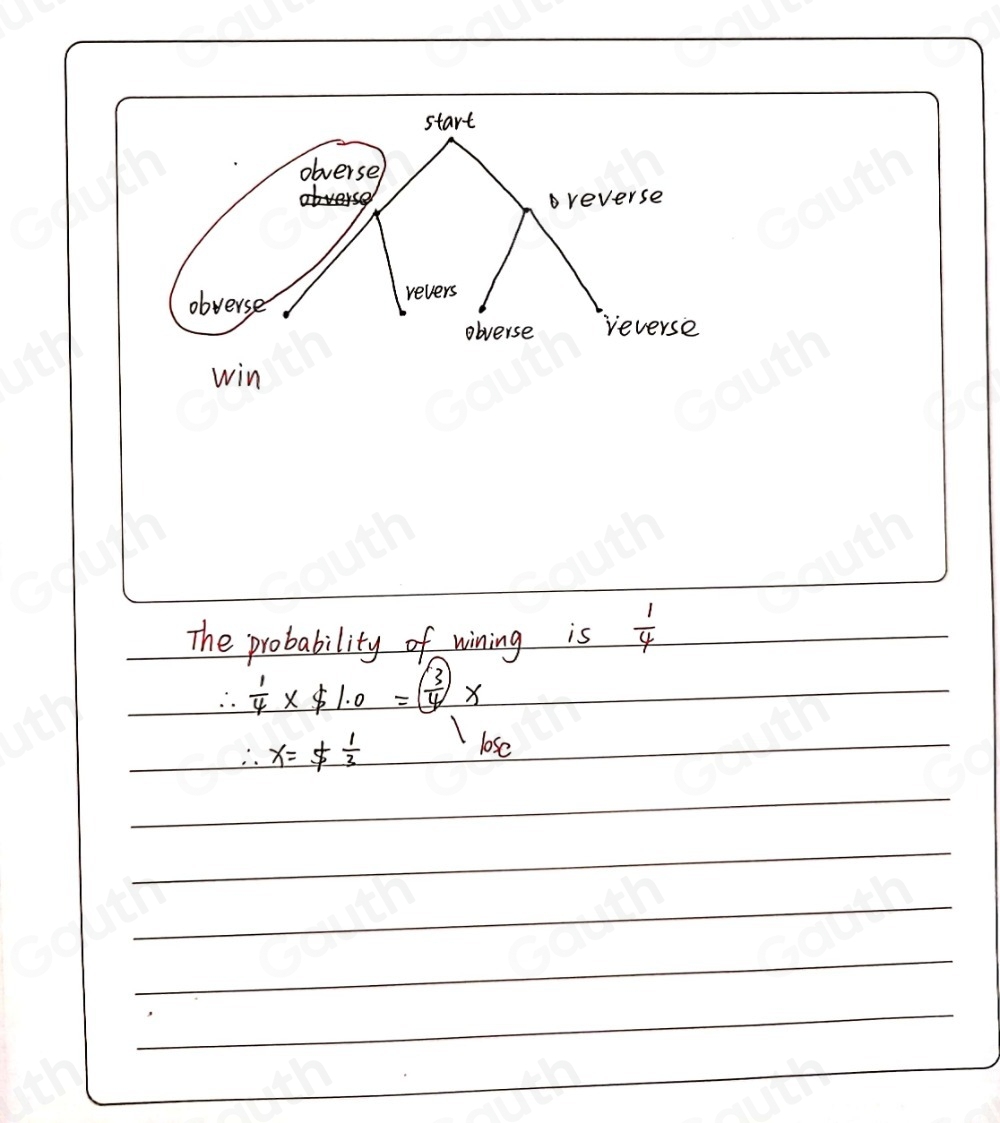 start
obverse
obverse
reverse
obverse
revers
obverse
reverse
win
The probability of wining is 1/4
∴ 1/4 × $ 1.0 = 3/4 x
lose
∴ x = $ 1/3